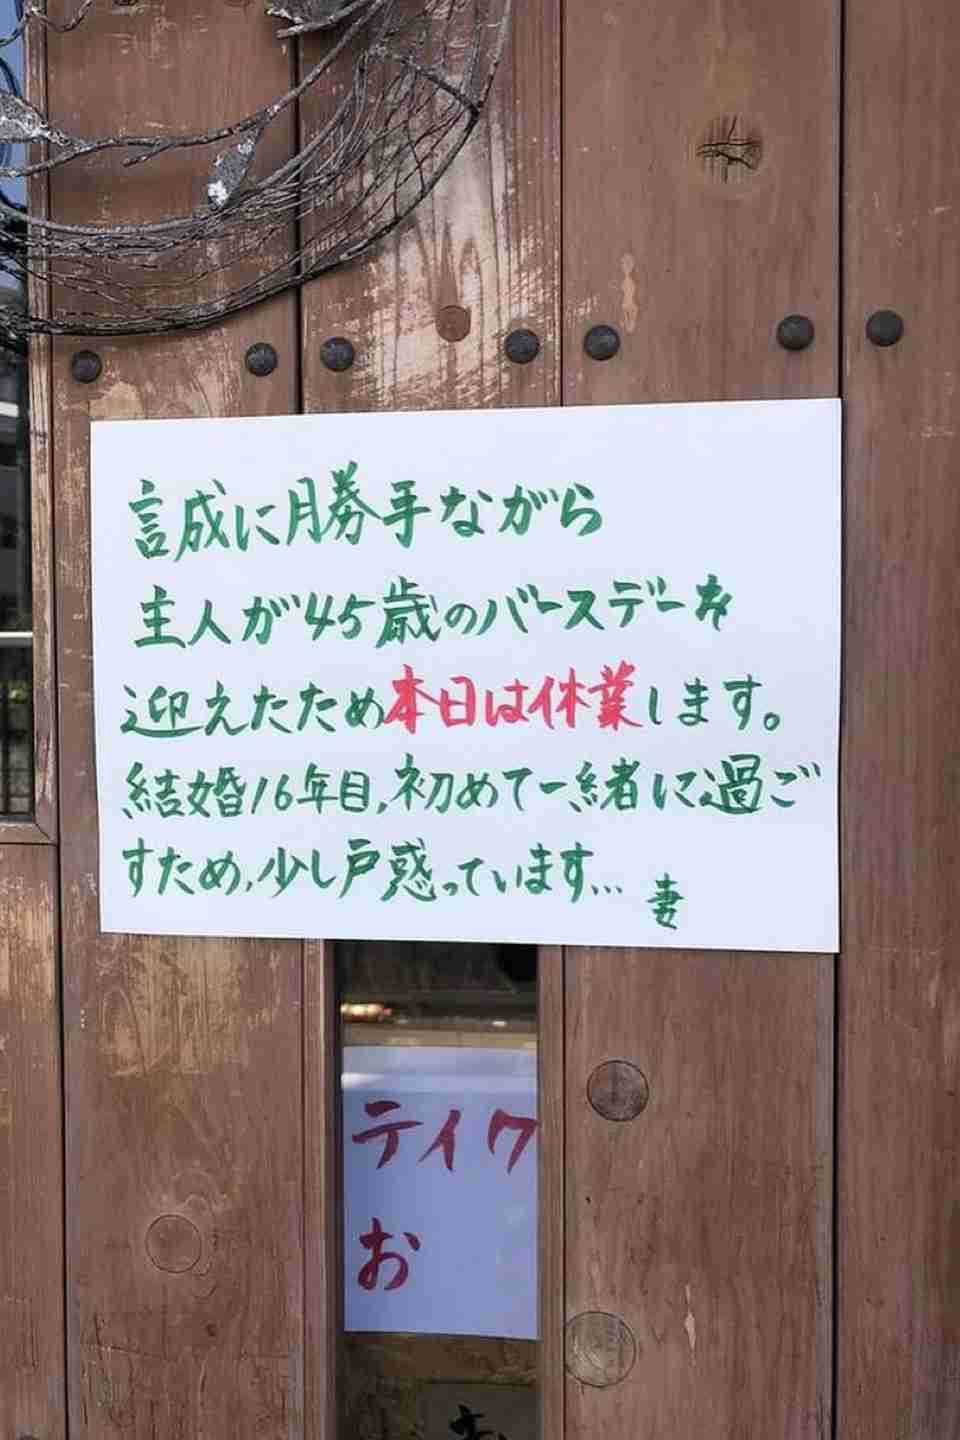 誠に勝手ながら
主人が45歳のバースデーを
迎えたため本日は休業します。
結婚16年目,初めて一緒に過ご
すため,少し戸惑っています…
妻
テイク
お